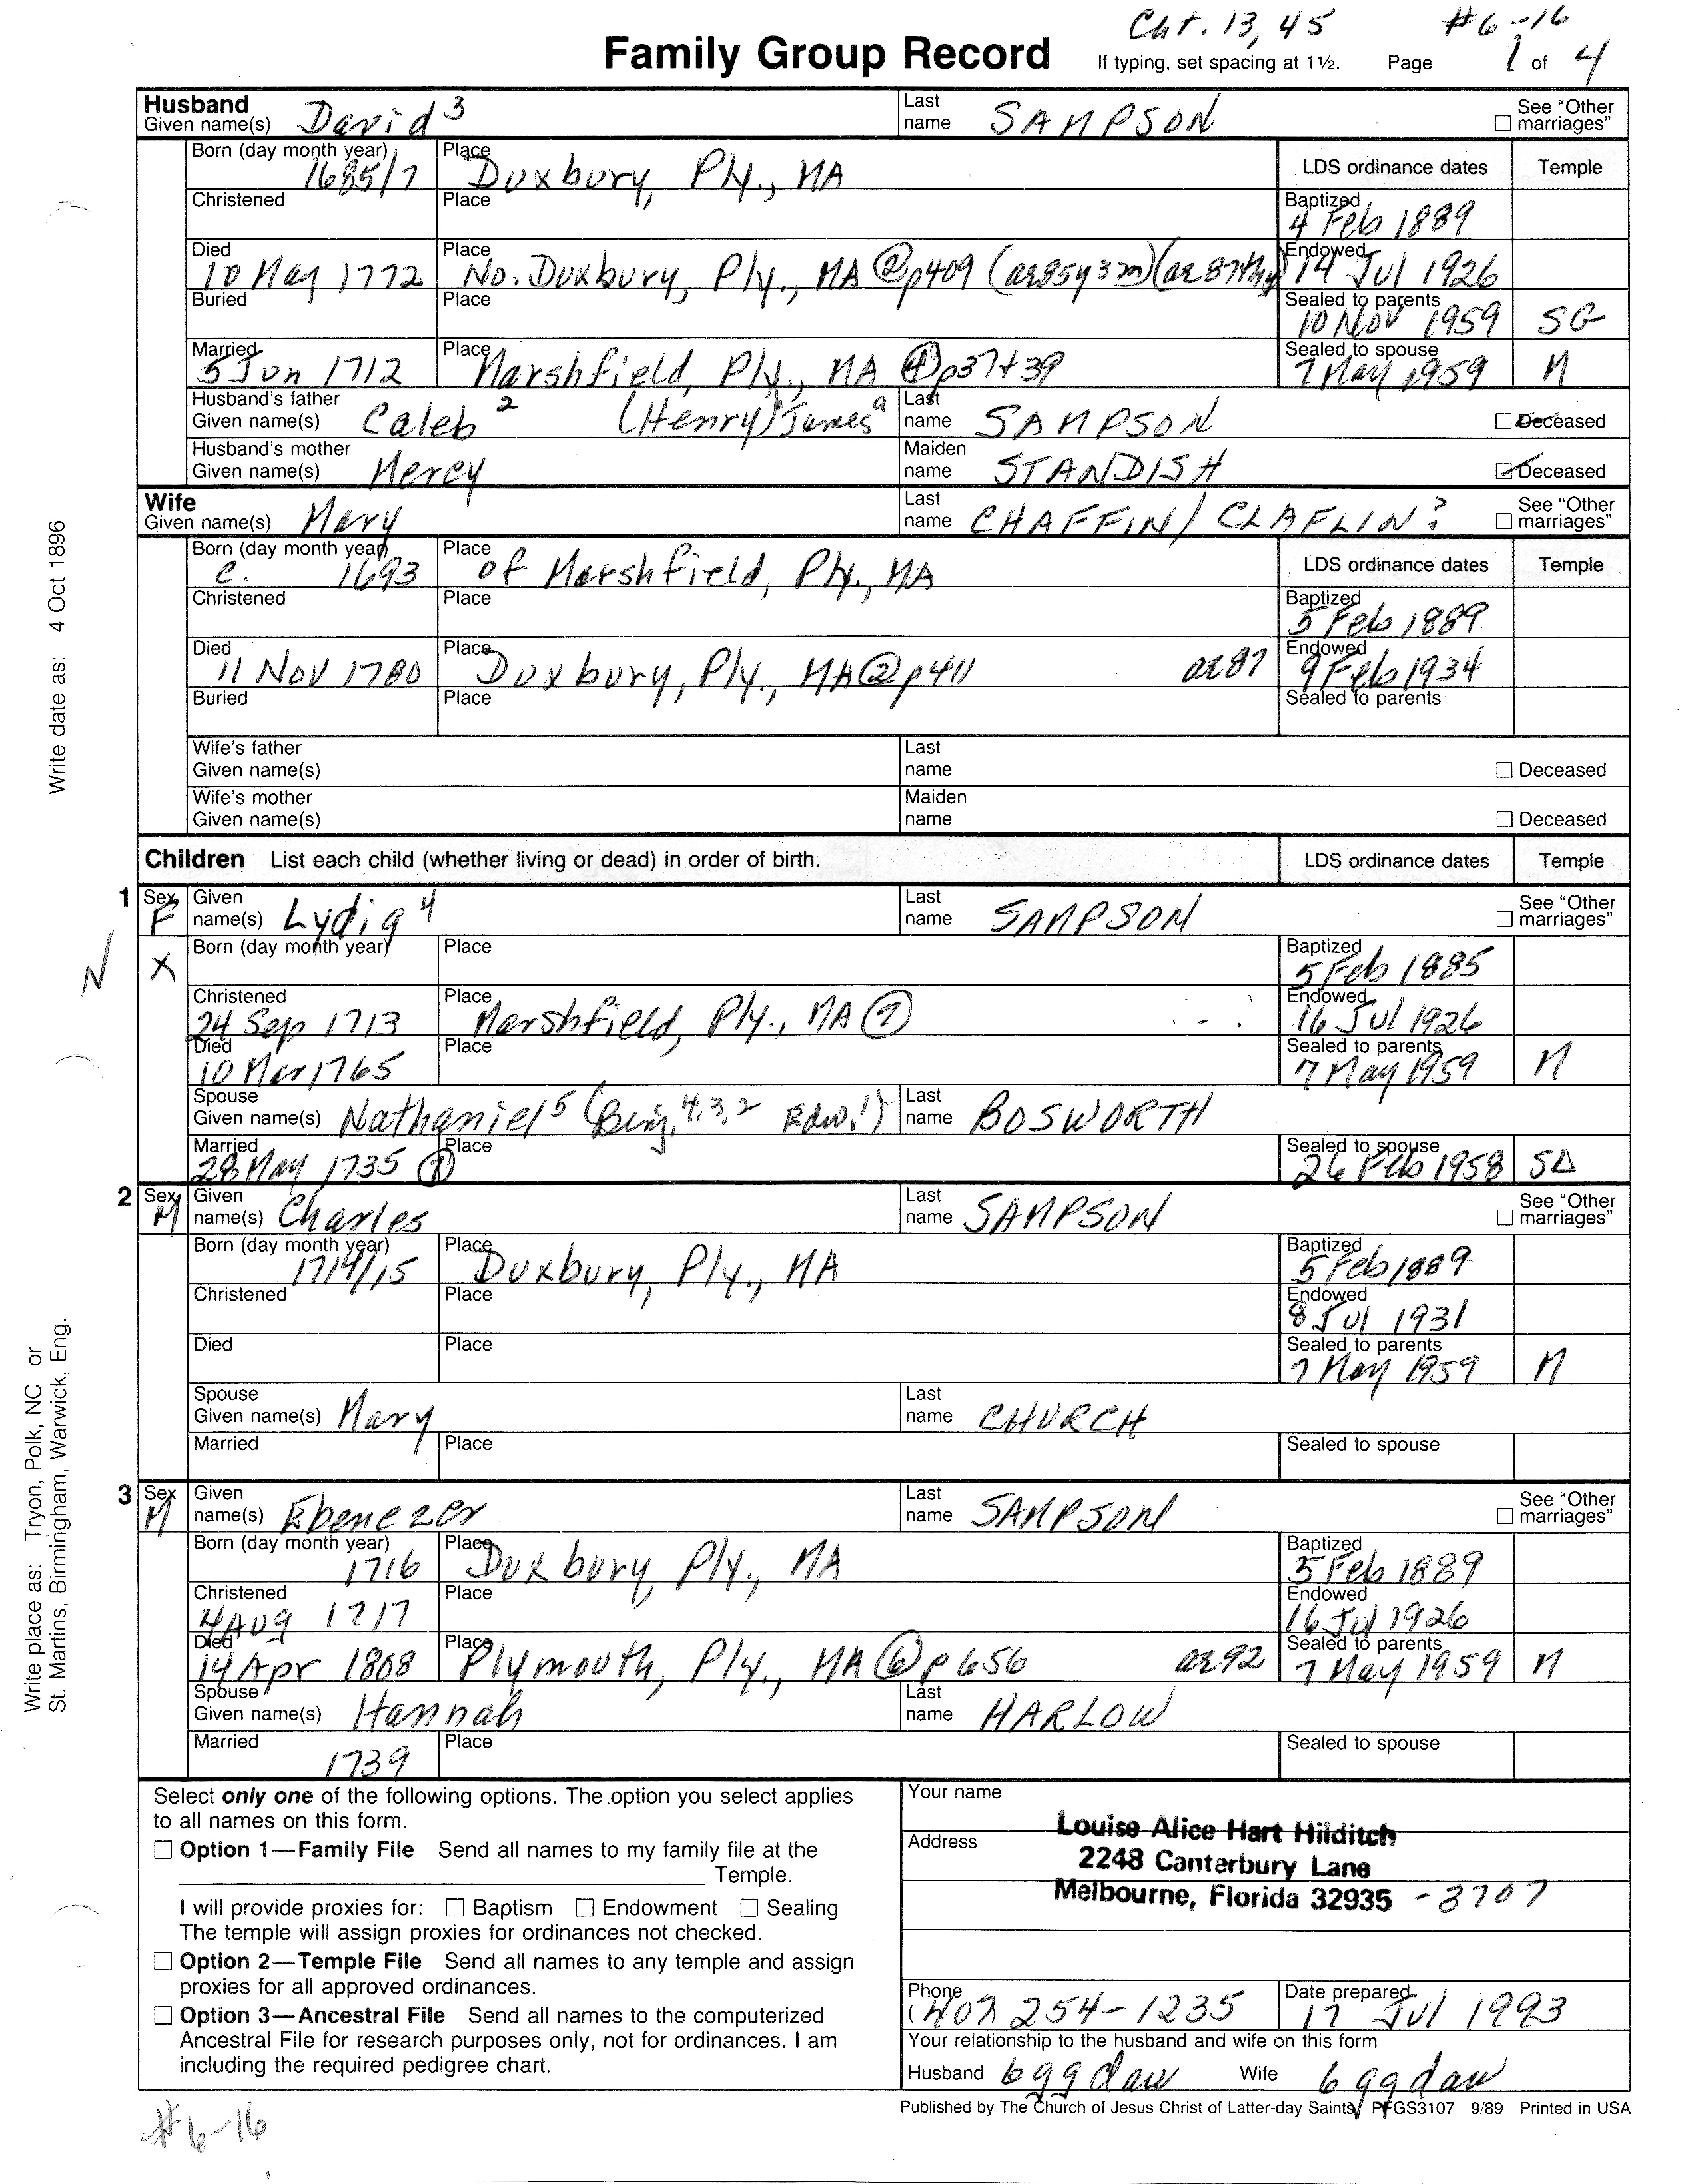 Cht. 13, 45 #6-16
Family Group Record If typing, set spacing at 1½. Page 1 of 4
Husband Given name(s) David 3 Last name SAMPSON See "Other marriages"
Born (day month year) 1685/7 Place Duxbury, Ply., MA LDS ordinance dates Temple
Christened Place Baptized 4 Feb 1889
Died 10 May 1772 Place No. Duxbury, Ply., MA ② p409 (ae 85y 3m) (ae 87th y) Endowed 14 Jul 1926
Buried Place Sealed to parents 10 Nov 1959 SG
Married 5 Jun 1712 Place Marshfield, Ply., MA ④ p37+39 Sealed to spouse 7 May 1959 M
Husband's father Given name(s) Caleb 2 (Henry) James a Last name SAMPSON Deceased
Husband's mother Given name(s) Mercy Maiden name STANDISH Deceased
Wife Given name(s) Mary Last name CHAFFIN/CLAFLIN? See "Other marriages"
Born (day month year) c. 1693 Place of Marshfield, Ply., MA LDS ordinance dates Temple
Christened Place Baptized 5 Feb 1889
Died 11 Nov 1780 Place Duxbury, Ply., MA ② p411 ae 87 Endowed 9 Feb 1934
Buried Place Sealed to parents
Wife's father Given name(s) Last name Deceased
Wife's mother Given name(s) Maiden name Deceased
Children List each child (whether living or dead) in order of birth. LDS ordinance dates Temple
1 Sex F Given name(s) Lydia 4 Last name SAMPSON See "Other marriages"
N X Born (day month year) Place Baptized 5 Feb 1885
Christened 24 Sep 1713 Place Marshfield, Ply., MA ⑦ Endowed 16 Jul 1926
Died 10 Mar 1765 Place Sealed to parents 7 May 1959 M
Spouse Given name(s) Nathaniel 5 (Benj. 4,3,2 Edw. 1) Last name BOSWORTH
Married 28 May 1735 ⑦ Place Sealed to spouse 26 Feb 1958 SL
2 Sex M Given name(s) Charles Last name SAMPSON See "Other marriages"
Born (day month year) 1714/15 Place Duxbury, Ply., MA Baptized 5 Feb 1889
Christened Place Endowed 8 Jul 1931
Died Place Sealed to parents 7 May 1959 M
Spouse Given name(s) Mary Last name CHURCH
Married Place Sealed to spouse
3 Sex M Given name(s) Ebenezer Last name SAMPSON See "Other marriages"
Born (day month year) 1716 Place Duxbury, Ply., MA Baptized 5 Feb 1889
Christened 4 Aug 1717 Place Endowed 16 Jul 1926
Died 14 Apr 1808 Place Plymouth, Ply., MA ⑥ p 656 ae 92 Sealed to parents 7 May 1959 M
Spouse Given name(s) Hannah Last name HARLOW
Married 1739 Place Sealed to spouse
Select only one of the following options. The option you select applies
to all names on this form.
Option 1—Family File Send all names to my family file at the
Temple.
I will provide proxies for: Baptism Endowment Sealing
The temple will assign proxies for ordinances not checked.
Option 2—Temple File Send all names to any temple and assign
proxies for all approved ordinances.
Option 3—Ancestral File Send all names to the computerized
Ancestral File for research purposes only, not for ordinances. I am
including the required pedigree chart.
Your name
Louise Alice Hart Hilditch
Address
2248 Canterbury Lane
Melbourne, Florida 32935 -3707
Phone (407) 254-1235 Date prepared 17 Jul 1993
Your relationship to the husband and wife on this form
Husband 6 gg dau Wife 6 gg dau
Published by The Church of Jesus Christ of Latter-day Saints PFGS3107 9/89 Printed in USA
#6-16
Write date as: 4 Oct 1896
Write place as: Tryon, Polk, NC or
St. Martins, Birmingham, Warwick, Eng.